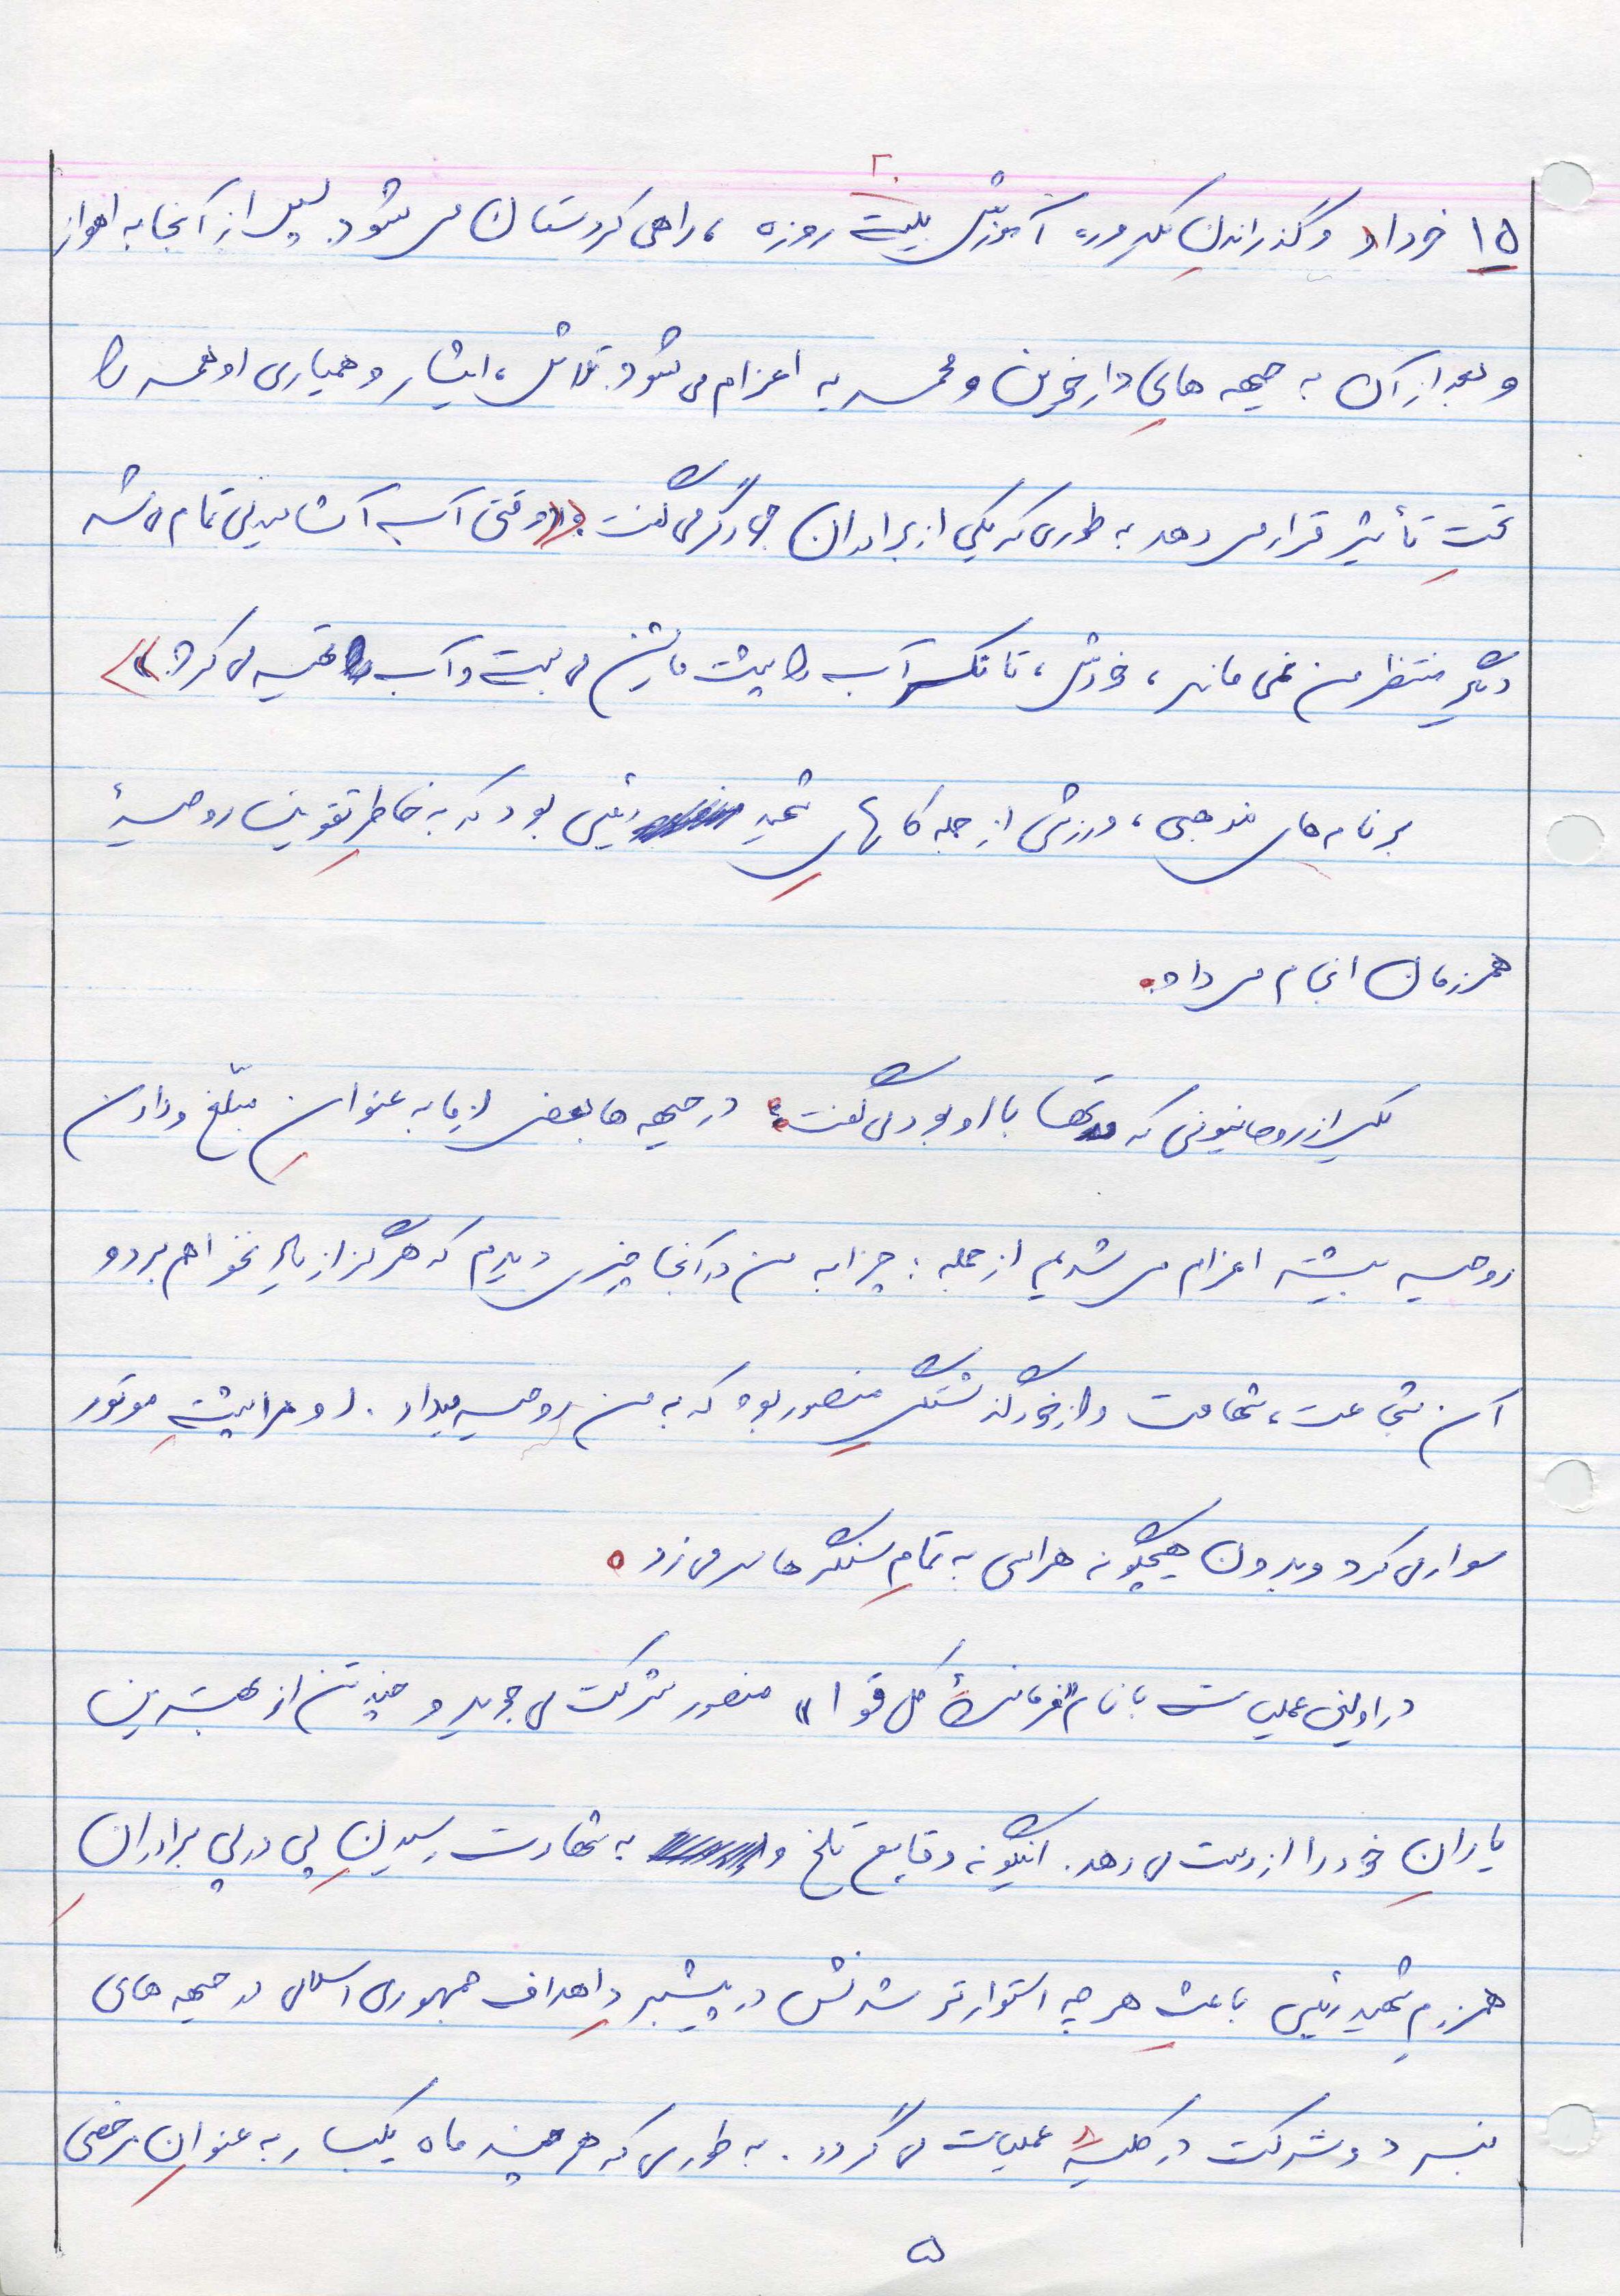 ۲۰
۱۵ خرداد و گذراندنِ یکدوره آموزش بیست روزه ، راهی کردستان می شود. پس از آنجا به اهواز
و بعد از آن به جبهه هایِ دارخوین و محمدیه اعزام می شود. تلاش ، ایثار و همیاری او همه را
تحتِ تأثیر قرار می دهد به طوری که یکی از برادران جهادگر می گفت «وقتی آب آشامیدنی تمام می شد
دیگر منتظر من نمی ماند ، خودش ، تانکر آب را پشت ماشین می بست و آب را تقسیم می کرد.»
برنامه های مذهبی ، ورزش از جمله کارهایِ شهید رئیسی بود که به خاطرِ تقویت روحیۀ
همرزمان انجام می داد.
یکی از روحانیونی که مدتها با او بود می گفت: در جبهه ها بعضی از ما به عنوانِ مبلّغ و دادن
روحیه بیشتر اعزام می شدیم از جمله : چرا به من در آنجا چیزی دیدم که هرگز از یاد نخواهم برد و
آن شجاعت ، شهامت و از خود گذشتگیِ منصور بود که به من روحیه میداد . او مرا پشتِ موتور
سوار می کرد و بدون هیچگونه هراسی به تمامِ سنگرها سر می زد.
در اولین عملیات با نام "فرماندۀ کل قوا" منصور شرکت می جوید و چند تن از بهترین
یارانِ خود را از دست می دهد. اینگونه وقایع تلخ و به شهادت رسیدنِ پی در پی برادرانِ
همرزمِ شهید رئیسی باعثِ هر چه استوارتر شدنش در پیشبردِ اهداف جمهوری اسلامی در جبهه های
نبرد و شرکت در کلیۀ عملیات می گردد . به طوری که هر چند ماه یکبار به عنوانِ مرخصی
۵